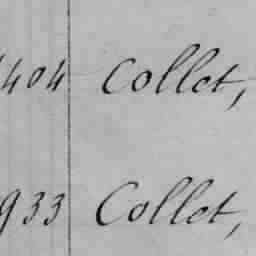 404 Collet,
933 Collet,